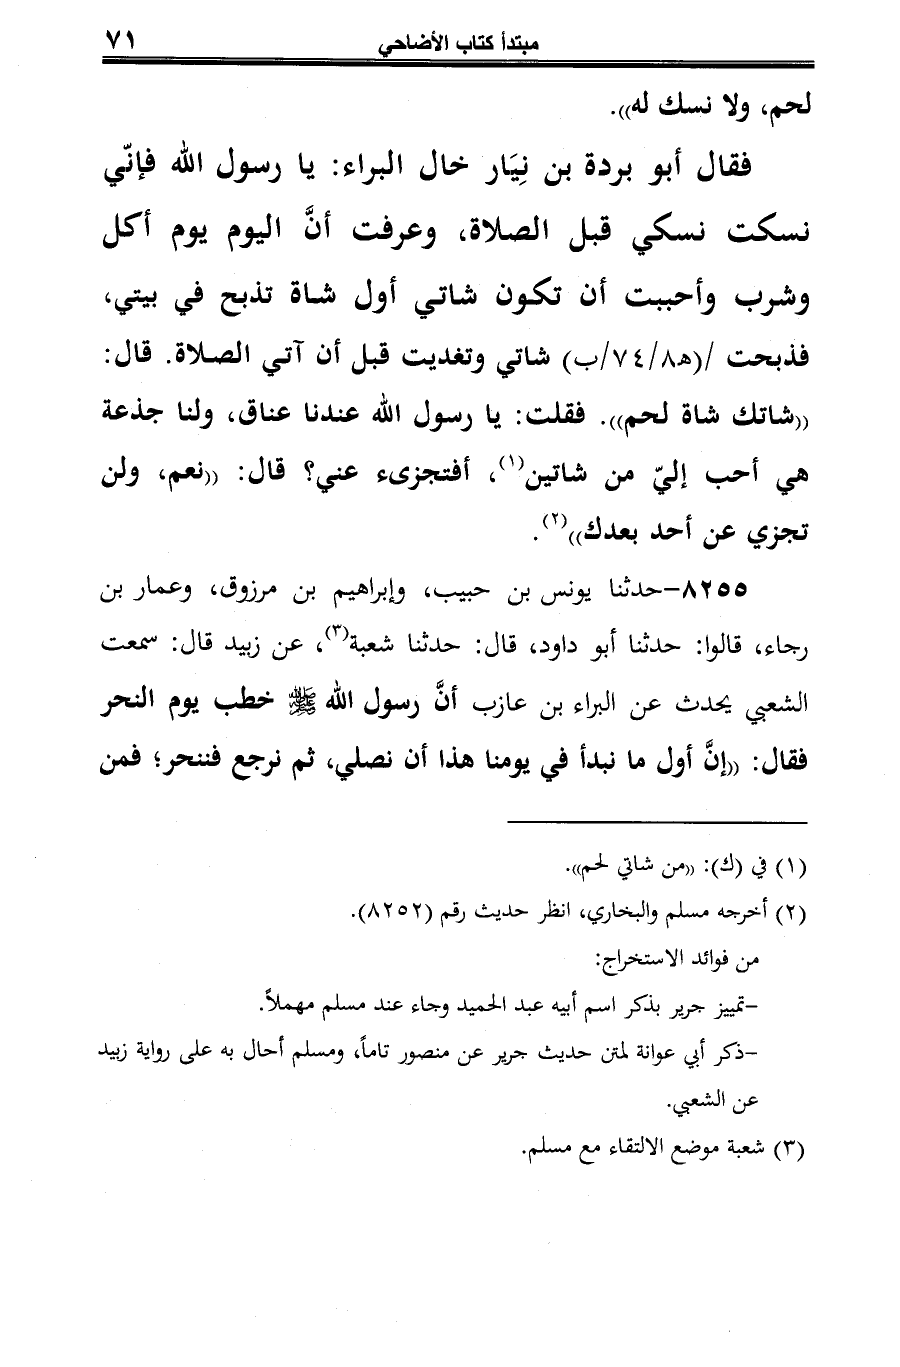 مبتدأ كتاب الأضاحي ٧١
لحم، ولا نسك له)).
فقال أبو بردة بن نِيَار خال البراء: يا رسول الله فإنّي
نسكت نسكي قبل الصلاة، وعرفت أنَّ اليوم يوم أكل
وشرب وأحببت أن تكون شاتي أول شاة تذبح في بيتي،
فذبحت /(ه٨/٧٤/ب) شاتي وتغديت قبل أن آتي الصلاة. قال:
((شاتك شاة لحم)). فقلت: يا رسول الله عندنا عناق، ولنا جذعة
هي أحب إليّ من شاتين(١)، أفتجزىء عني؟ قال: ((نعم، ولن
تجزي عن أحد بعدك))(٢).
٨٢٥٥-حدثنا يونس بن حبيب، وإبراهيم بن مرزوق، وعمار بن
رجاء، قالوا: حدثنا أبو داود، قال: حدثنا شعبة(٣)، عن زبيد قال: سمعت
الشعبي يحدث عن البراء بن عازب أنَّ رسول الله ﷺ خطب يوم النحر
فقال: ((إنَّ أول ما نبدأ في يومنا هذا أن نصلي، ثم نرجع فننحر؛ فمن
(١) في (ك): ((من شاتي لحم)).
(٢) أخرجه مسلم والبخاري، انظر حديث رقم (٨٢٥٢).
من فوائد الاستخراج:
-تمييز جرير بذكر اسم أبيه عبد الحميد وجاء عند مسلم مهملاً.
-ذكر أبي عوانة لمتن حديث جرير عن منصور تاماً، ومسلم أحال به على رواية زبيد
عن الشعبي.
(٣) شعبة موضع الالتقاء مع مسلم.